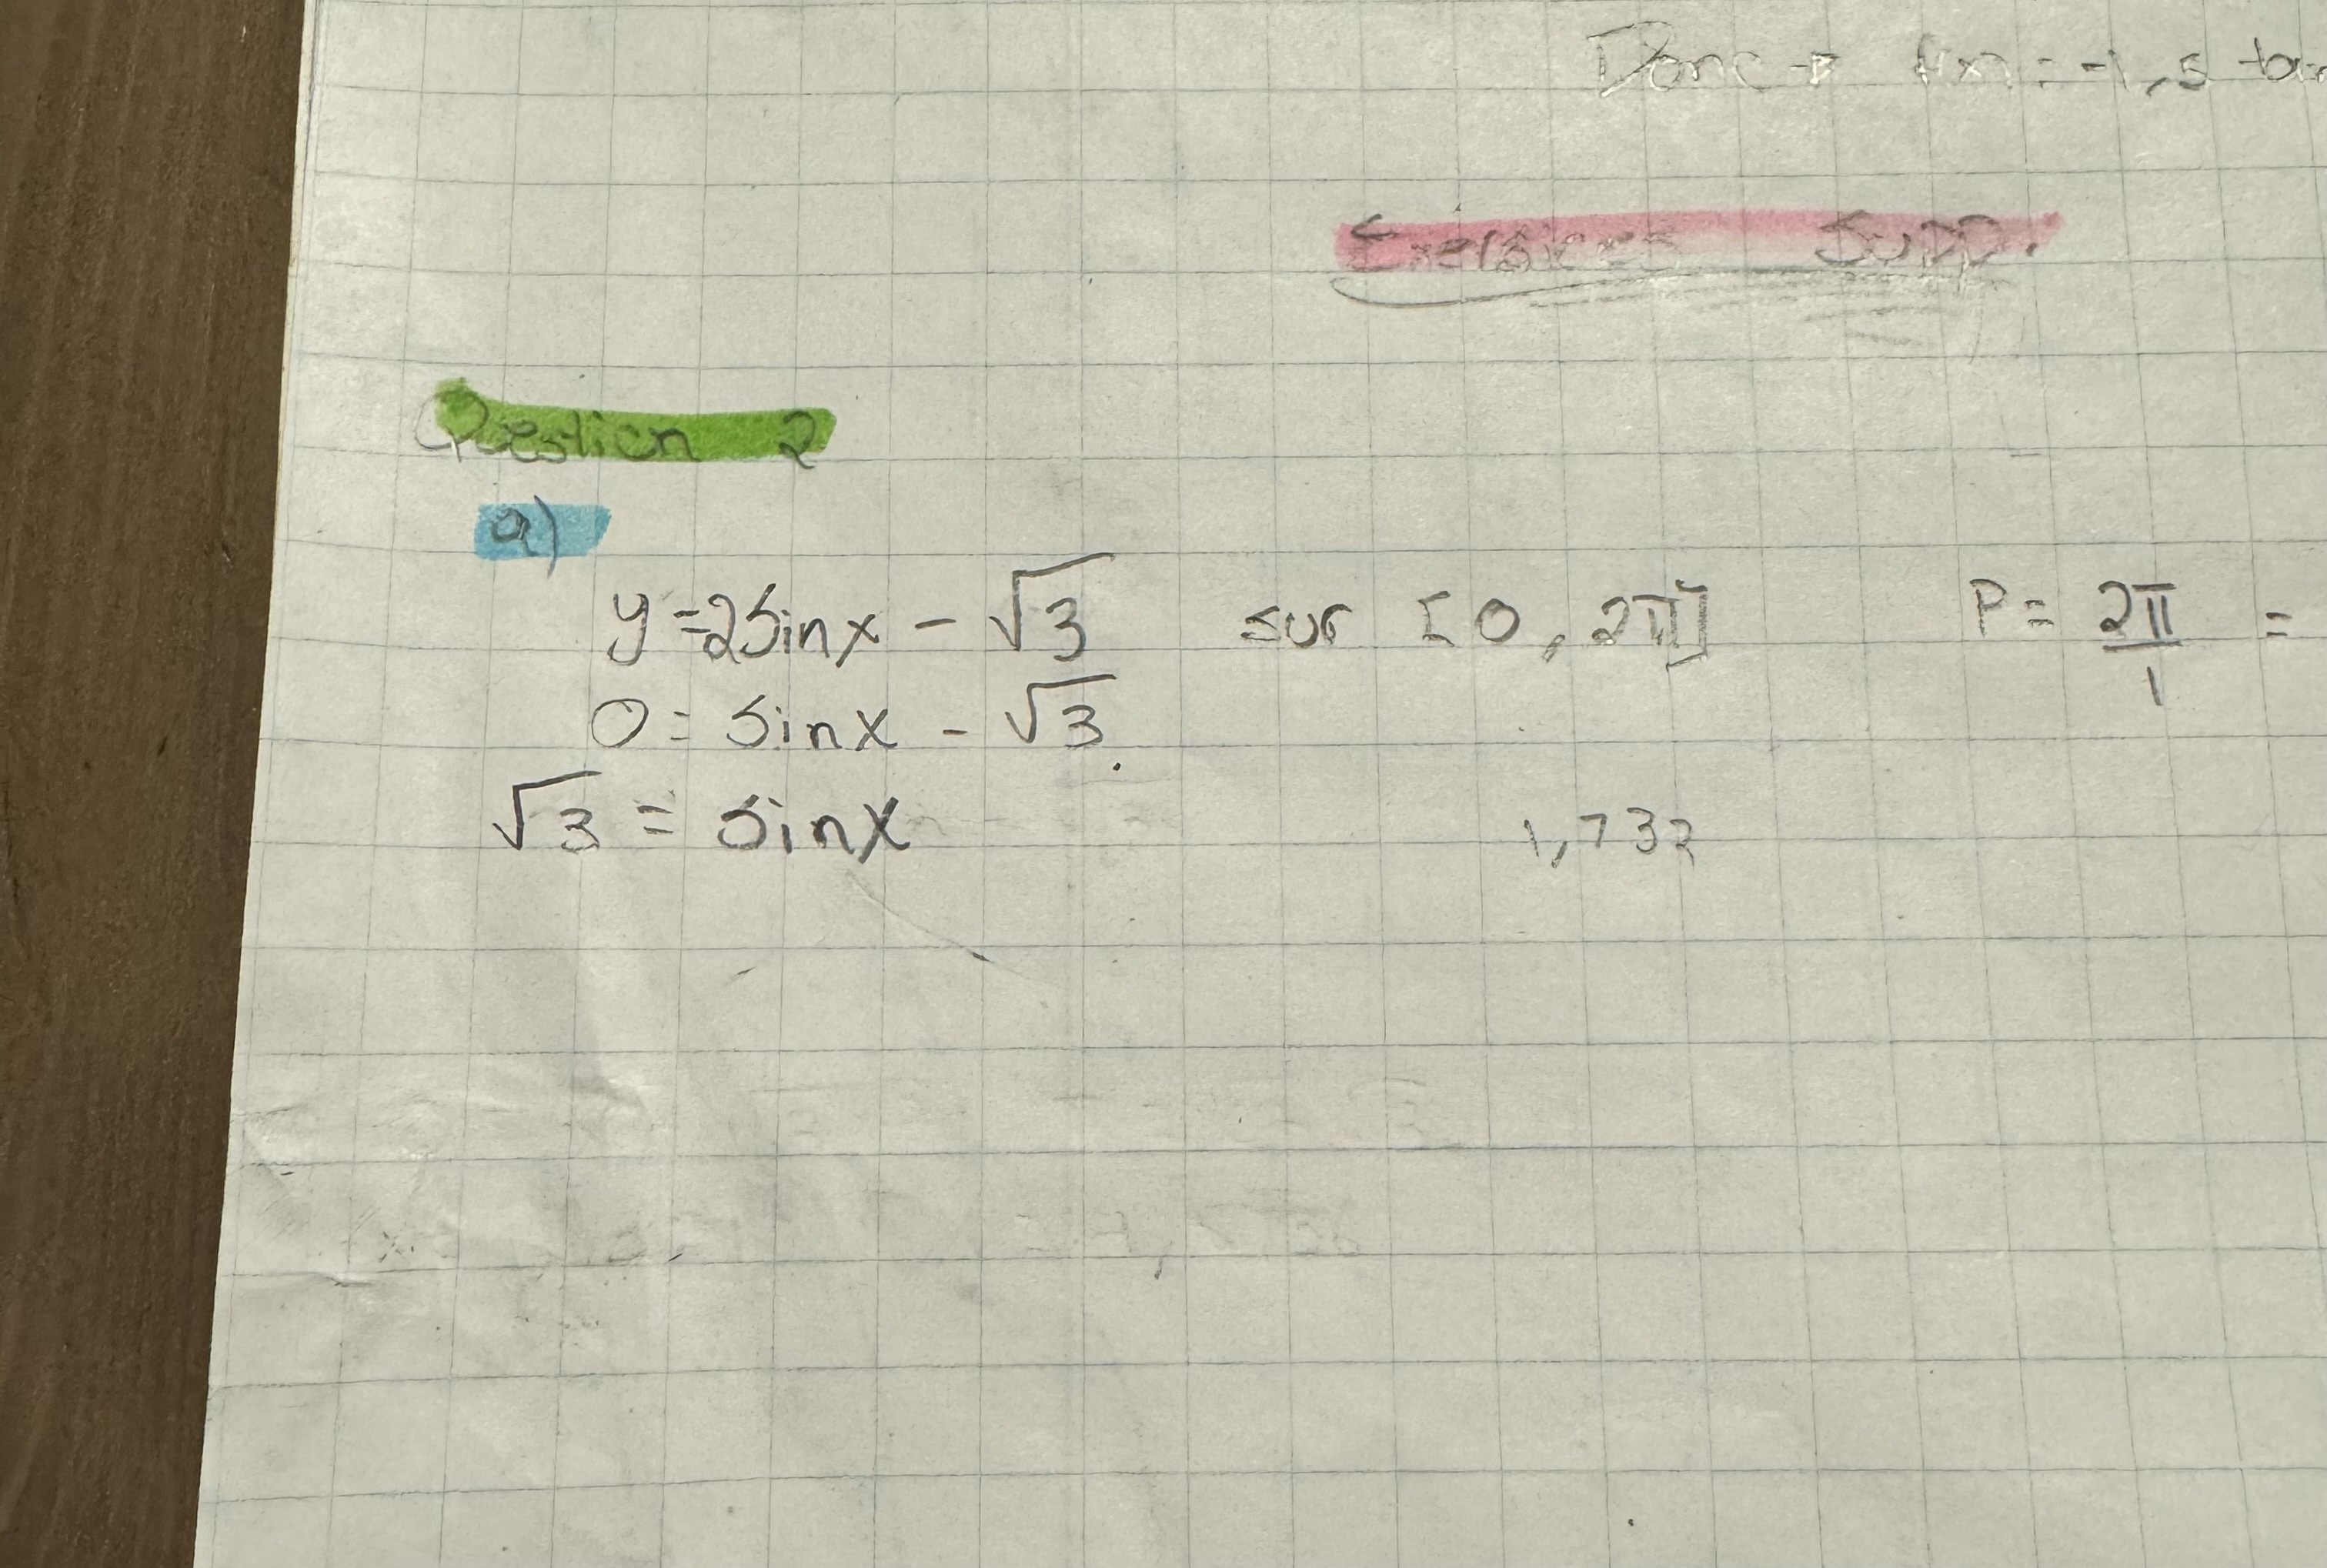 Donc → f(x) = -1,5 tan
Exercices Supp.
Question 2
a)
y = 2 sin x - √3 sur [0, 2π] P = 2π/1 =
0 = sin x - √3
√3 = sin x 1,732